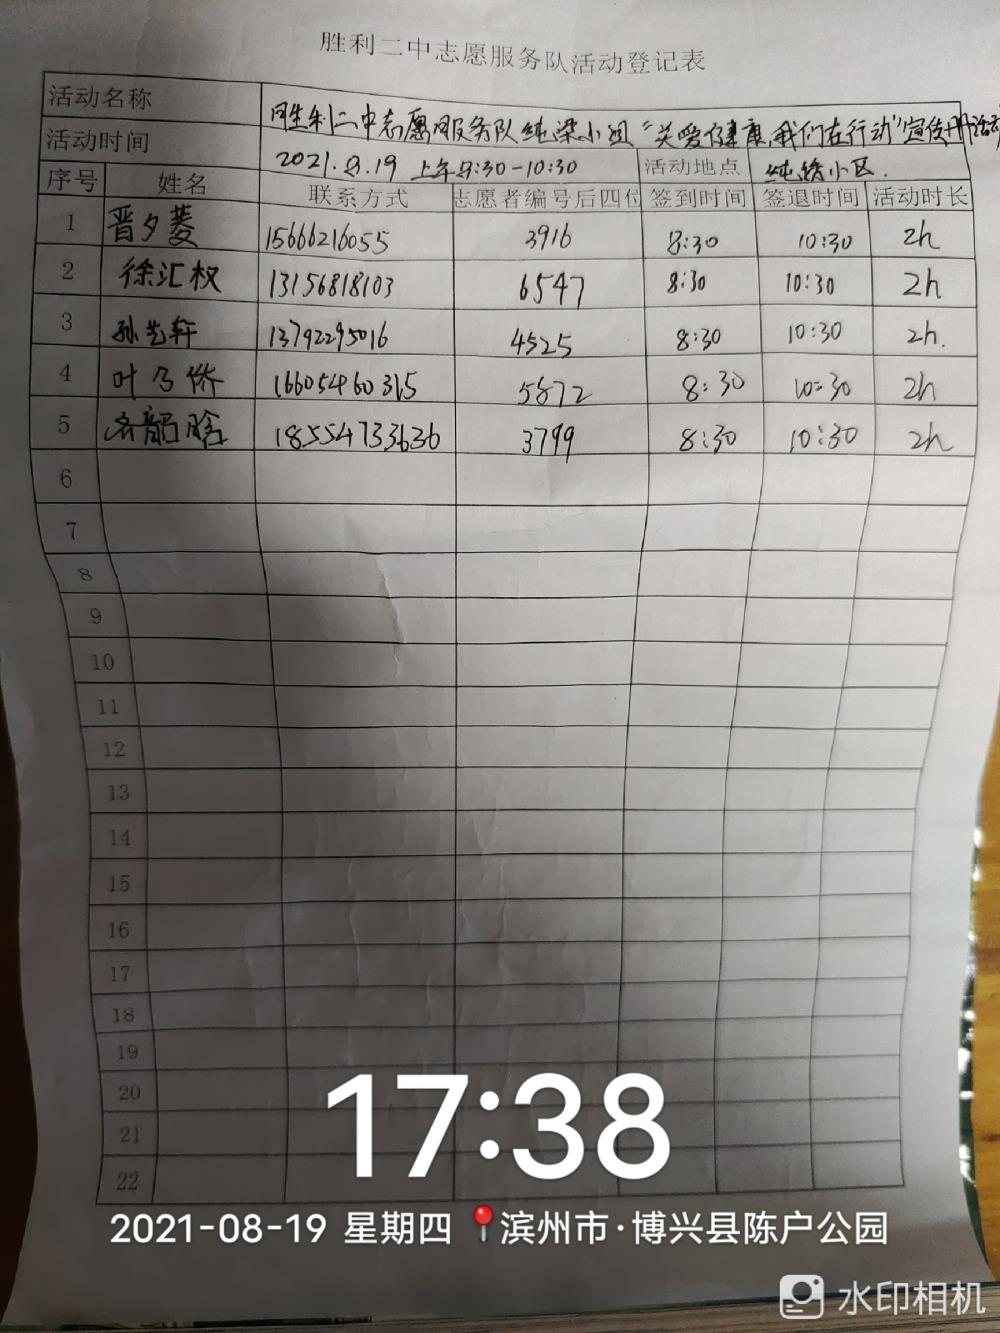 胜利二中志愿服务队活动登记表
活动名称 胜利二中志愿服务队纯梁小组“关爱健康,我们在行动”宣传
活动时间 2021.8.19 上午8:30-10:30 活动地点 小区.
序号 姓名 联系方式 志愿者编号后四位 签到时间 签退时间 活动时长
1 晋夕菱 15666216055 3916 8:30 10:30 2h
2 徐汇权 13156818103 6547 8:30 10:30 2h
3 孙艺轩 13792295016 4525 8:30 10:30 2h.
4 叶乃侨 16605460315 5872 8:30 10:30 2h
5 18554733636 3799 8:30 10:30 2h
6
7
8
9
10
11
12
13
14
15
16
17
18
19
20
21
22
17:38
2021-08-19 星期四 滨州市·博兴县陈户公园
水印相机